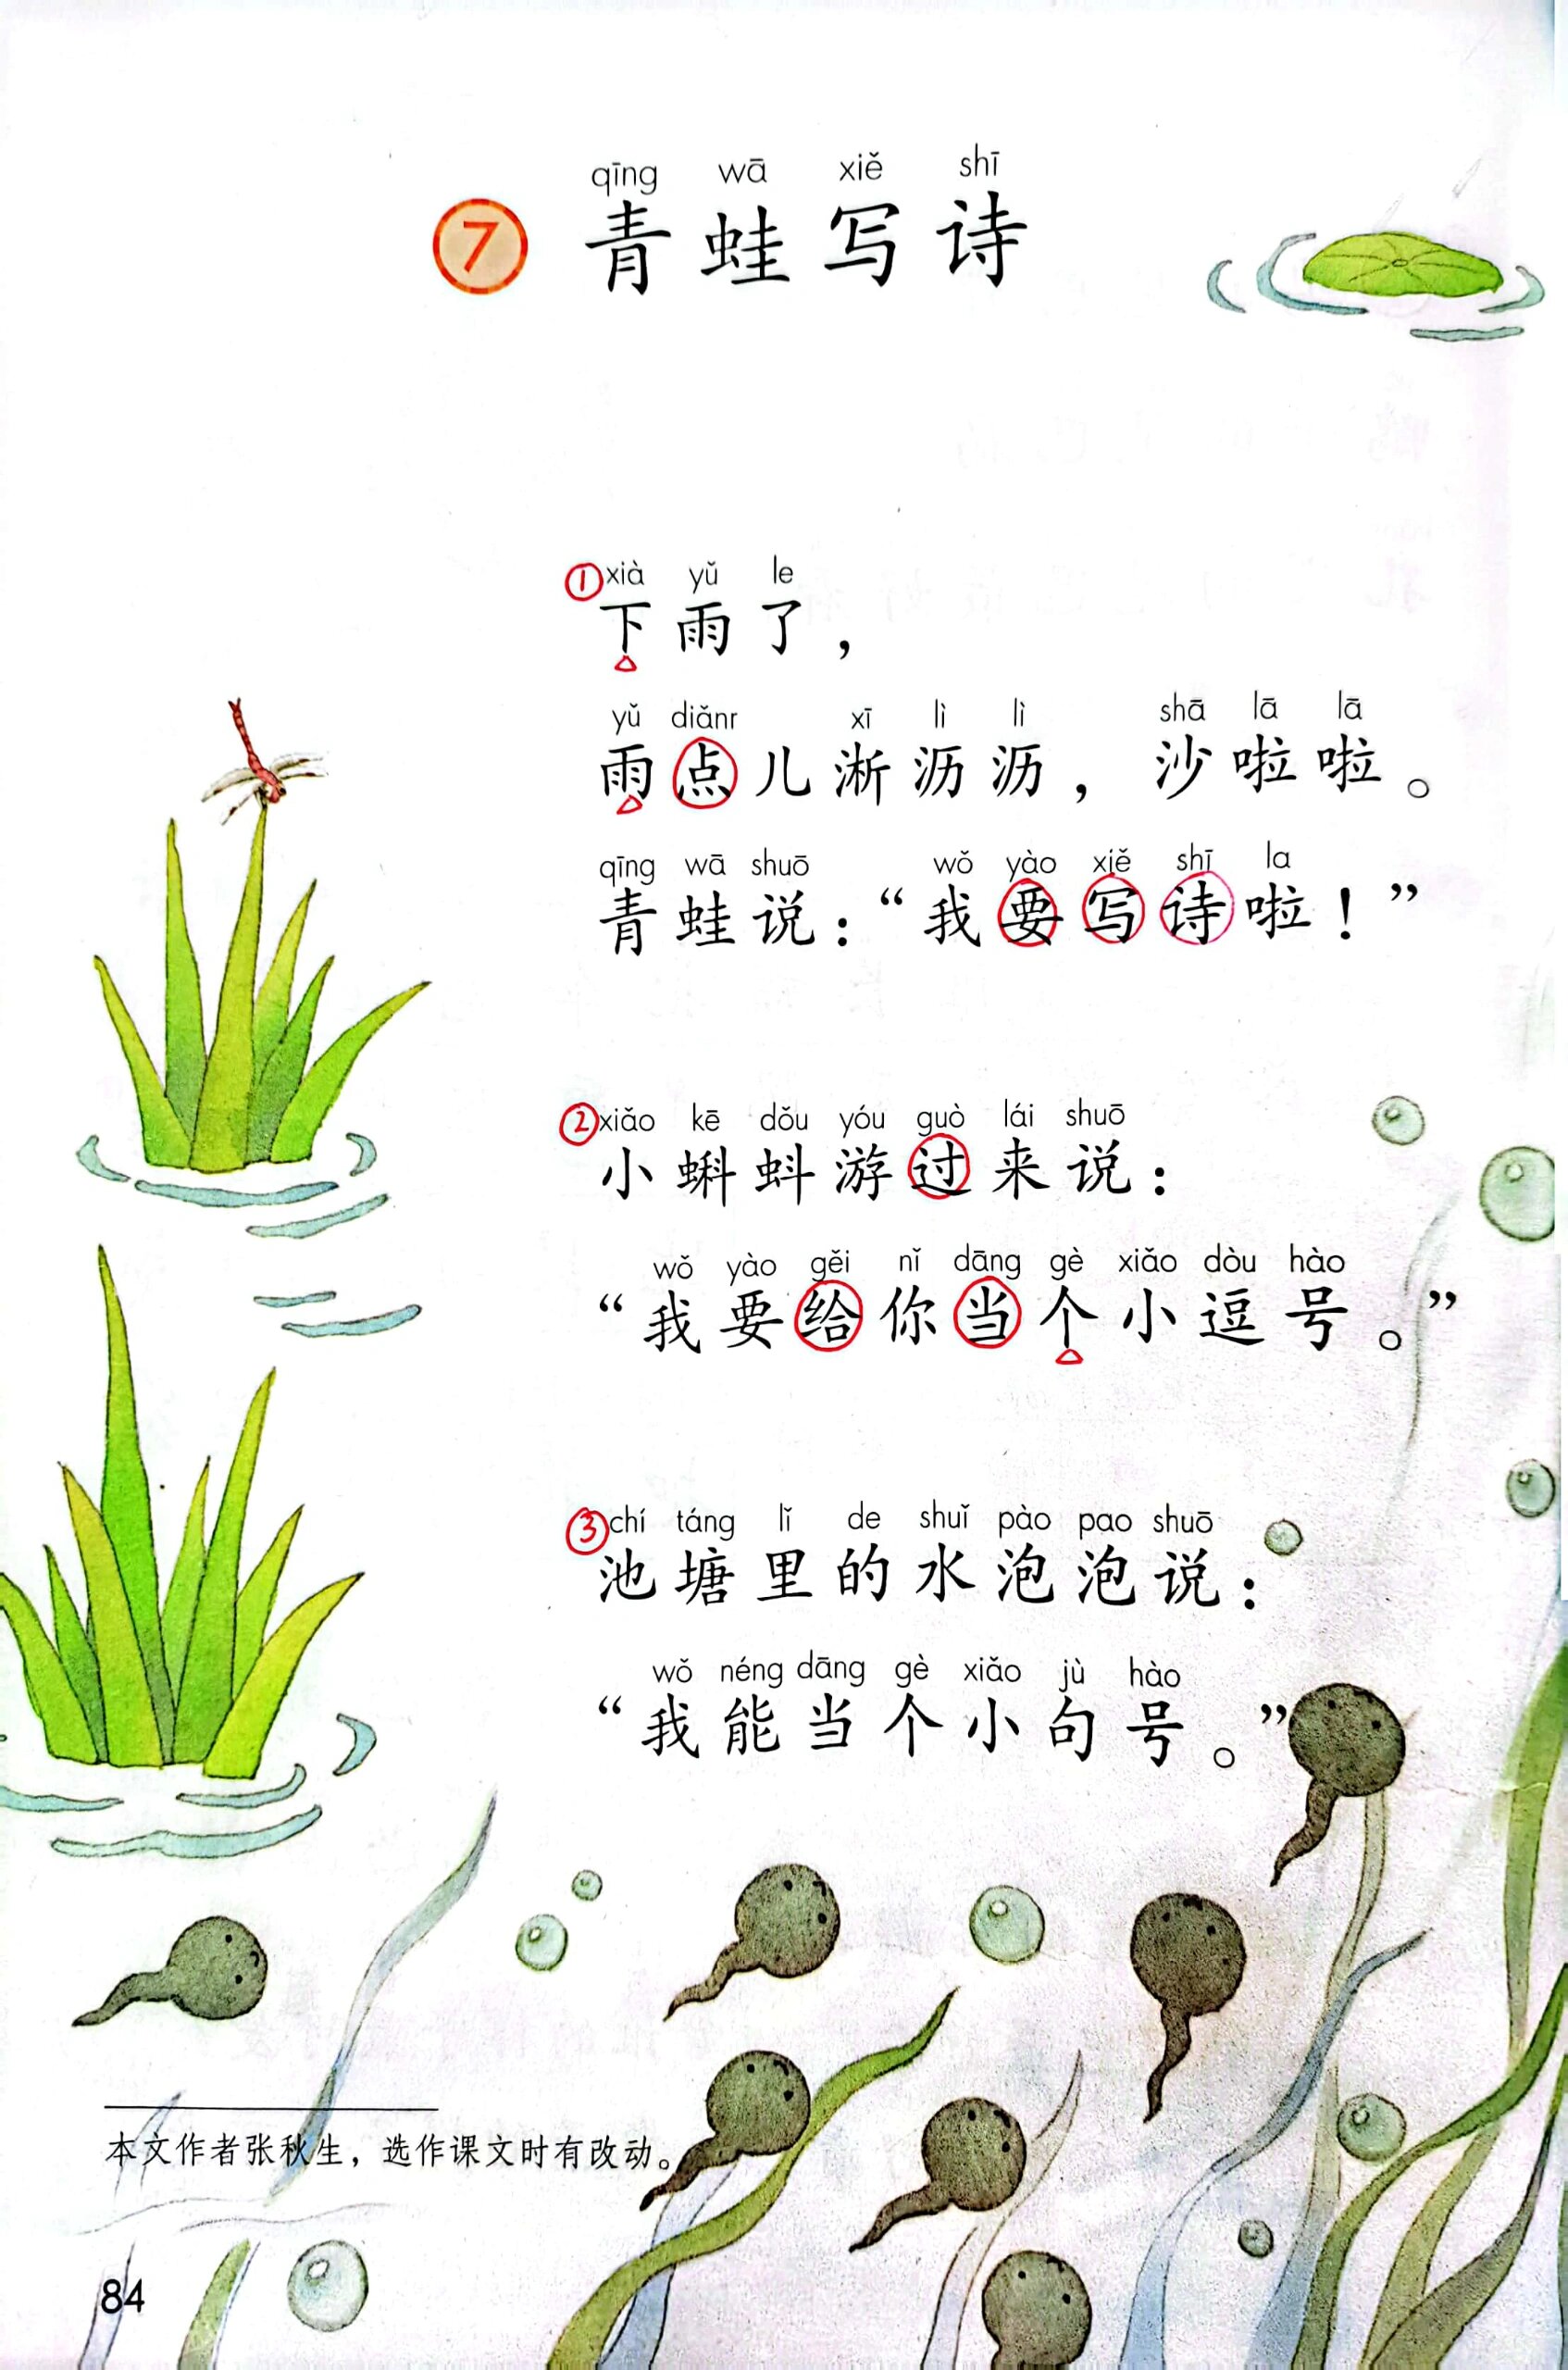 qīng wā xiě shī
7 青蛙写诗
① xià yǔ le
下雨了，
yǔ diǎnr xī lì lì shā lā lā
雨点儿淅沥沥，沙啦啦。
qīng wā shuō wǒ yào xiě shī la
青蛙说：“我要写诗啦！”
② xiǎo kē dǒu yóu guò lái shuō
小蝌蚪游过来说：
wǒ yào gěi nǐ dāng gè xiǎo dòu hào
“我要给你当个小逗号。”
③ chí táng lǐ de shuǐ pào pao shuō
池塘里的水泡泡说：
wǒ néng dāng gè xiǎo jù hào
“我能当个小句号。”
本文作者张秋生，选作课文时有改动。
84